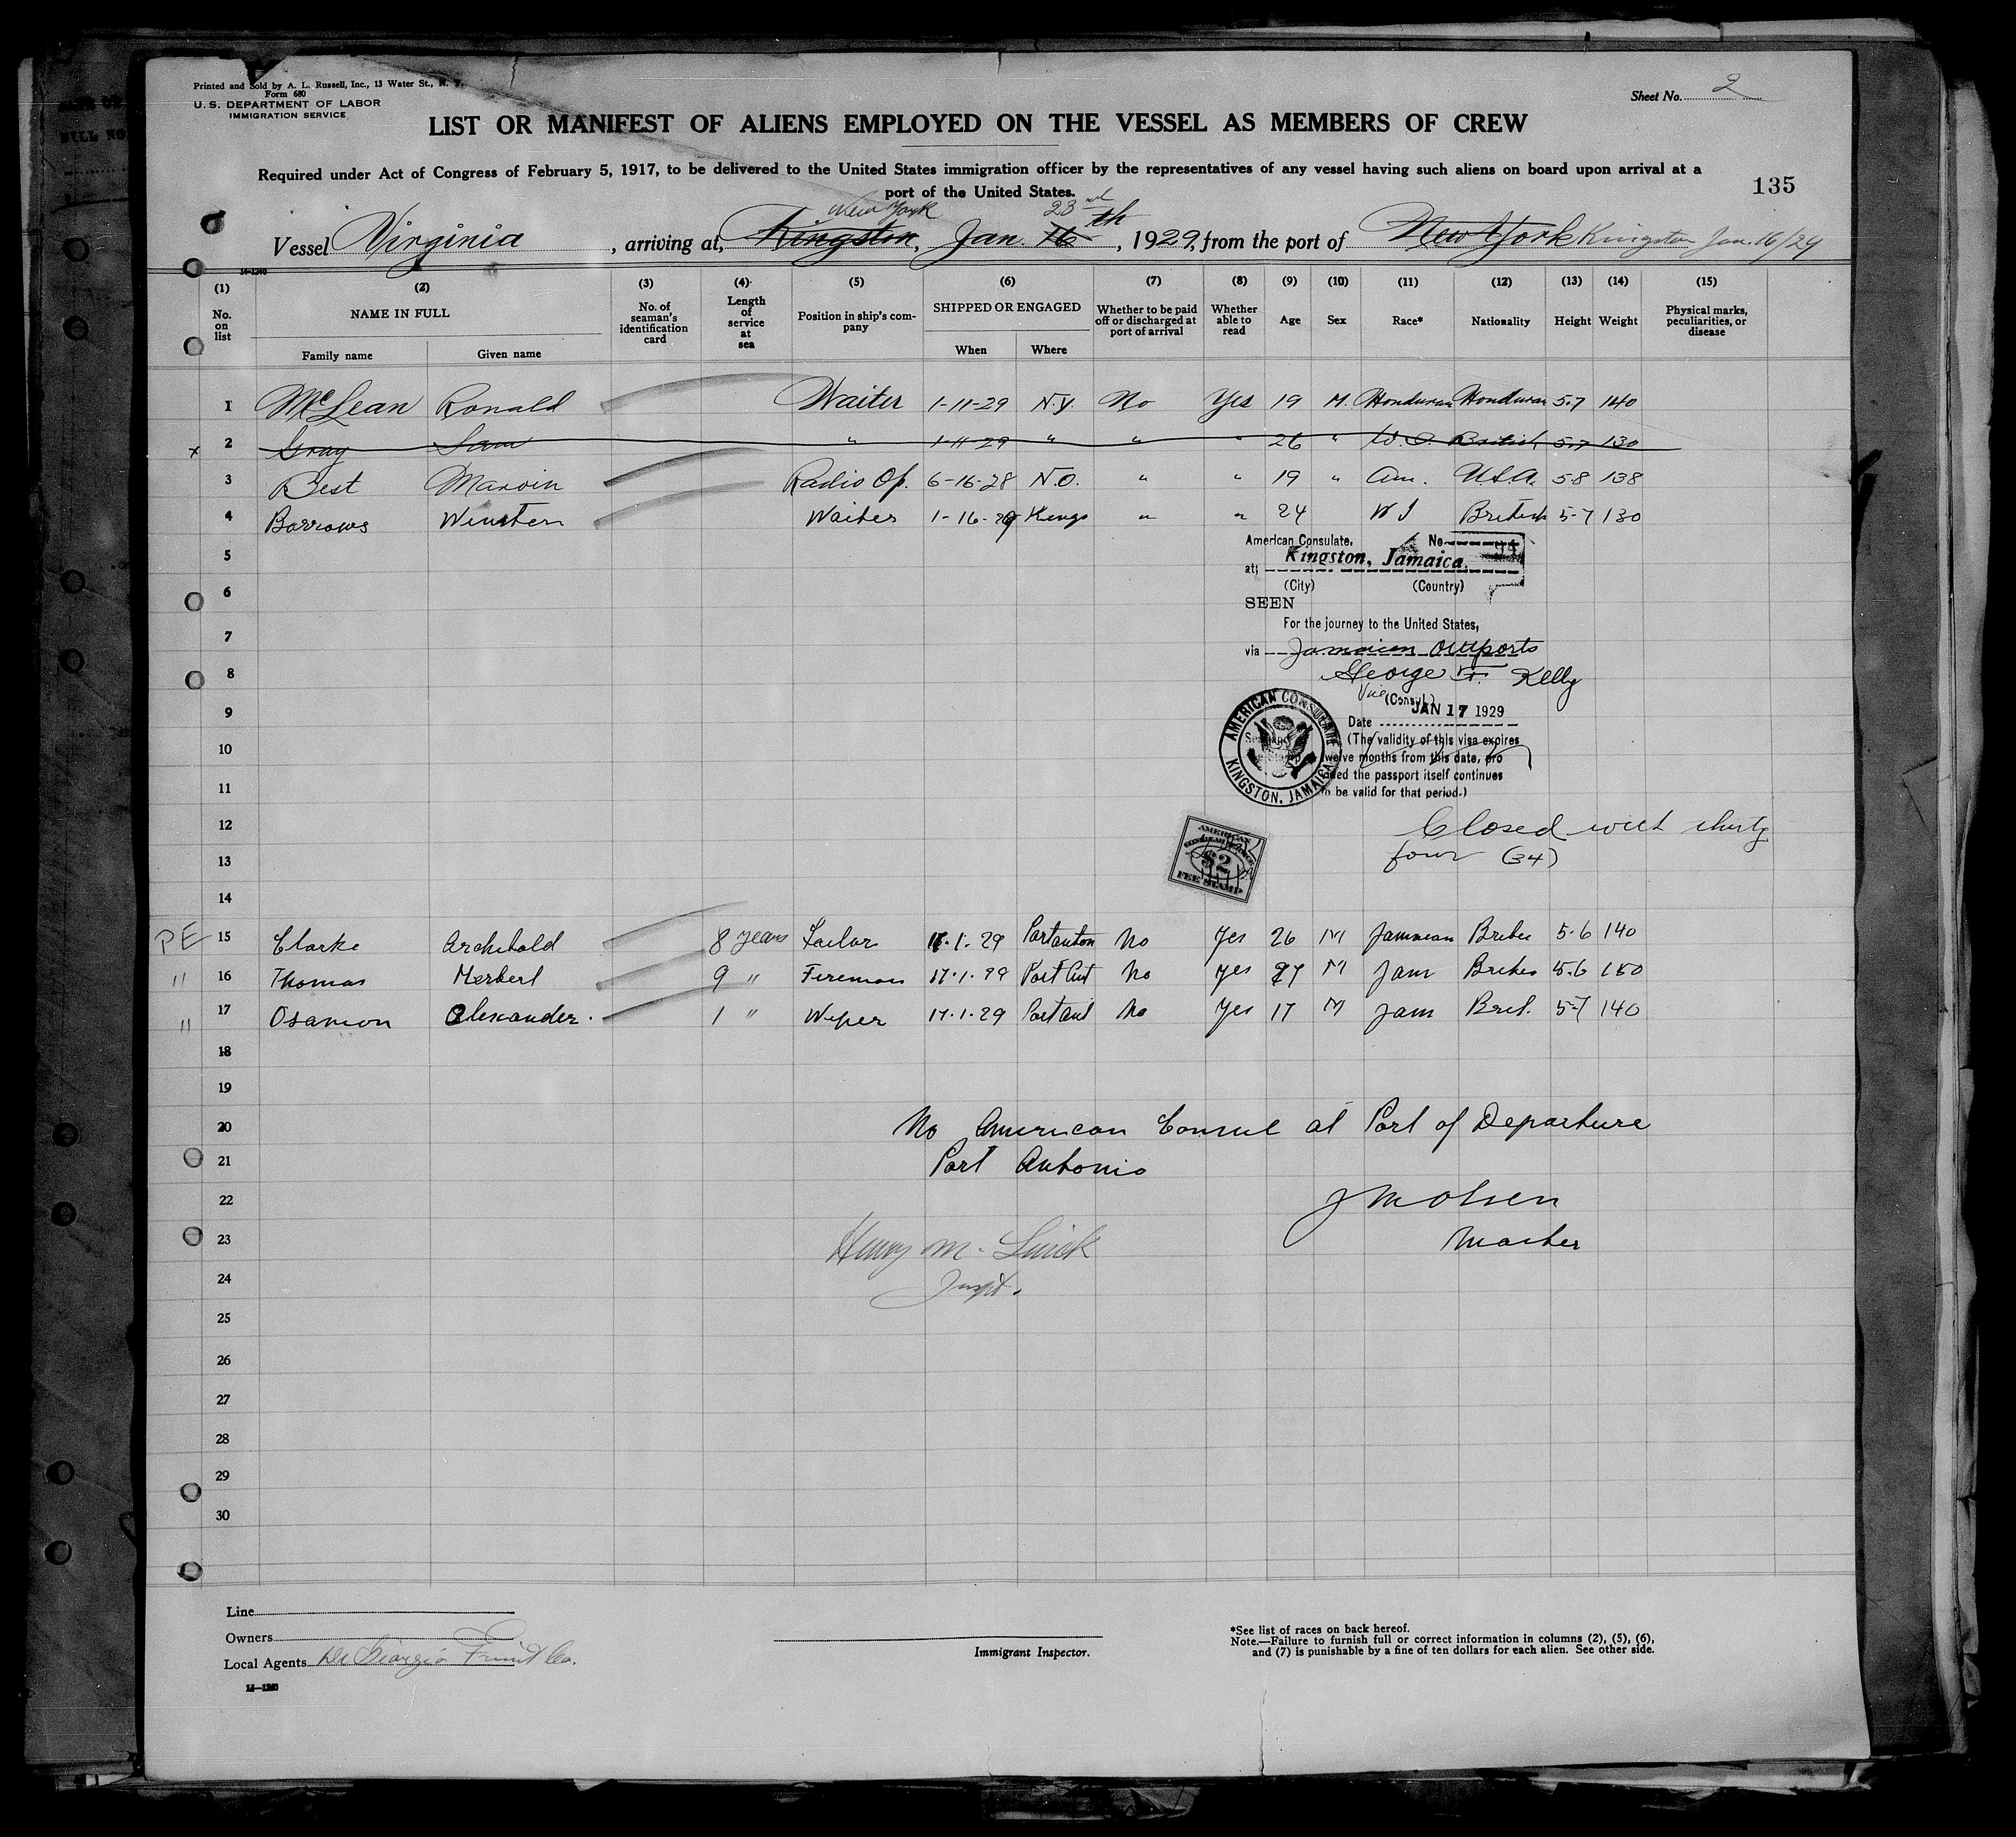 Printed and Sold by A. L. Russell, Inc., 13 Water St., N. Y.
Form 680
U. S. DEPARTMENT OF LABOR
IMMIGRATION SERVICE
Sheet No. 2
LIST OR MANIFEST OF ALIENS EMPLOYED ON THE VESSEL AS MEMBERS OF CREW
Required under Act of Congress of February 5, 1917, to be delivered to the United States immigration officer by the representatives of any vessel having such aliens on board upon arrival at a
port of the United States.
135
New York 23rd
Vessel Virginia, arriving at, Kingston, Jan. 16th, 1929, from the port of New York Kingston Jan. 16/29
14-1240
(1) (2) (3) (4) (5) (6) (7) (8) (9) (10) (11) (12) (13) (14) (15)
No. on list NAME IN FULL No. of seaman's identification card Length of service at sea Position in ship's company SHIPPED OR ENGAGED Whether to be paid off or discharged at port of arrival Whether able to read Age Sex Race* Nationality Height Weight Physical marks, peculiarities, or disease
Family name Given name When Where
1 McLean Ronald Waiter 1-11-29 N.Y. No Yes 19 M. Honduran Honduran 5-7 140
x 2 Gray Sam " 1-11-29 " " " 26 " W.I. British 5-7 130
3 Best Marvin Radio Op. 6-16-28 N.O. " " 19 " Am. U.S.A. 5-8 138
4 Barrows Winsten Waiter 1-16-29 Kings " " 24 W I British 5-7 130
5
American Consulate, No.
at; Kingston, Jamaica.
(City) (Country)
6
SEEN
7
For the journey to the United States,
via Jamaican Outports
8
George F. Kelly
Vice (Consul)
9
Date JAN 17 1929
10
(The validity of this visa expires
twelve months from this date, pro
vided the passport itself continues
11
to be valid for that period.)
AMERICAN CONSULATE
KINGSTON, JAMAICA
12
Closed with thirty
13
four (34)
AMERICAN
$2
FEE STAMP
14
PE 15 Clarke Archibald 8 years Sailor 17.1.29 Port Anton No Yes 26 M Jamaican British 5-6 140
" 16 Thomas Herbert 9 " Fireman 17.1.29 Port Ant No Yes 27 M Jam British 5.6 150
" 17 Osamon Alexander. 1 " Wiper 17.1.29 Port Ant No Yes 17 M Jam Brit. 5-7 140
18
19
20 No American Consul at Port of Departure
21 Port Antonio
22 J M Olsen
23 Henry M. Master
24 Inspt.
25
26
27
28
29
30
Line
Owners
Local Agents Di Giorgio Fruit Co.
14-1240
Immigrant Inspector.
*See list of races on back hereof.
Note.—Failure to furnish full or correct information in columns (2), (5), (6),
and (7) is punishable by a fine of ten dollars for each alien. See other side.